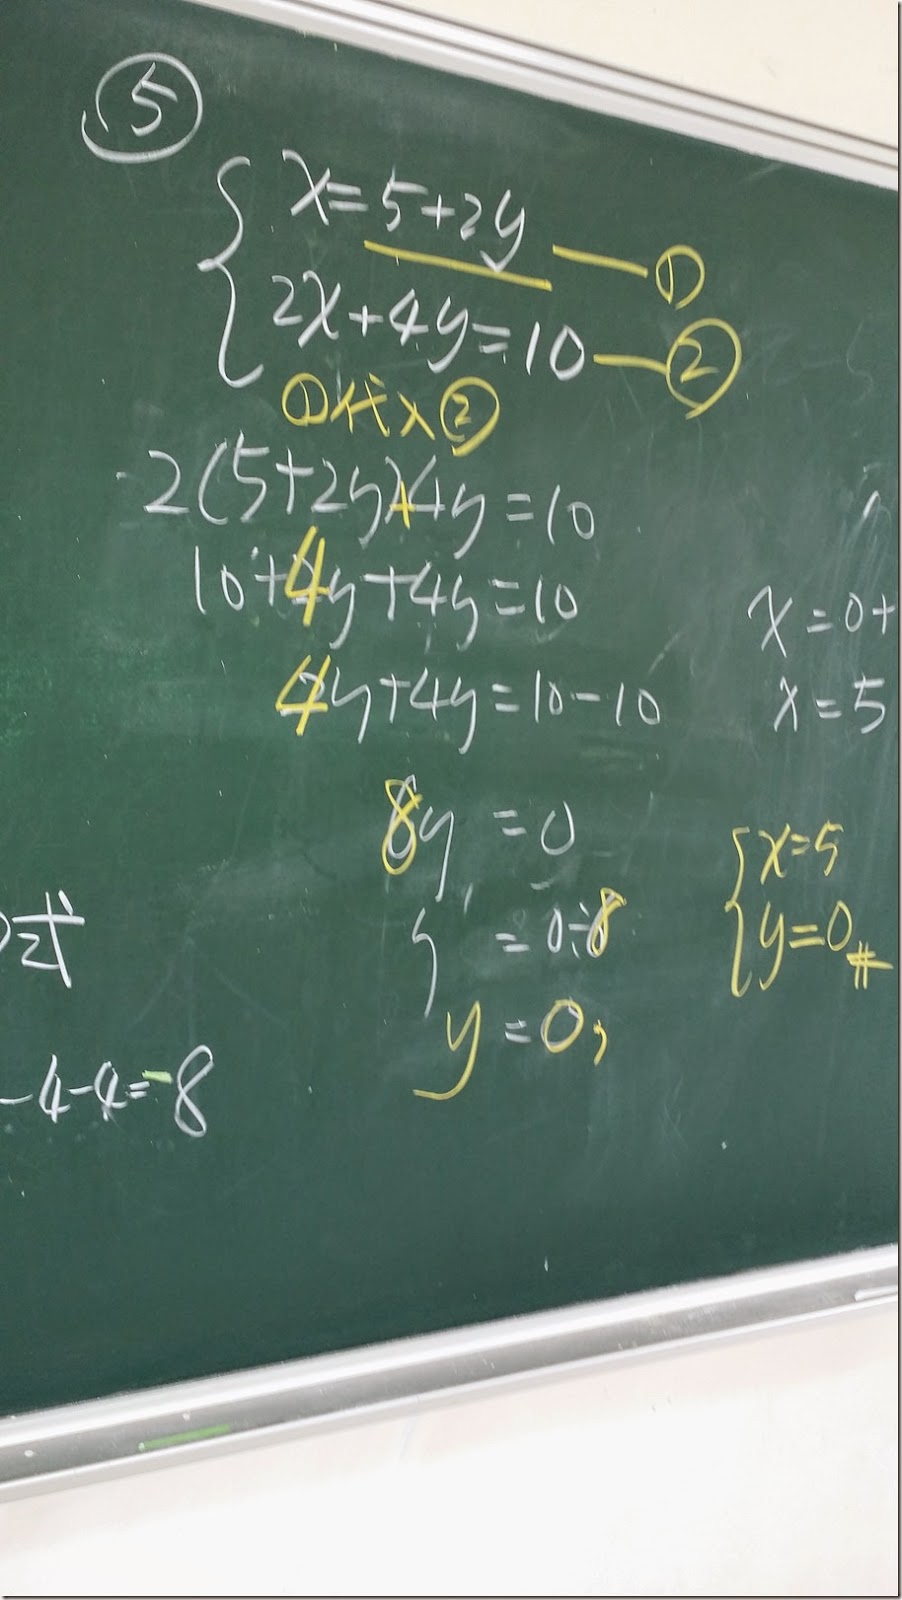 ⑤
x=5+2y ①
2x+4y=10 ②
①代入②
2(5+2y)+4y=10
10+4y+4y=10
4y+4y=10-10
8y=0
y=0÷8
y=0,
x=0+
x=5
x=5
y=0#
式
-4-4=-8